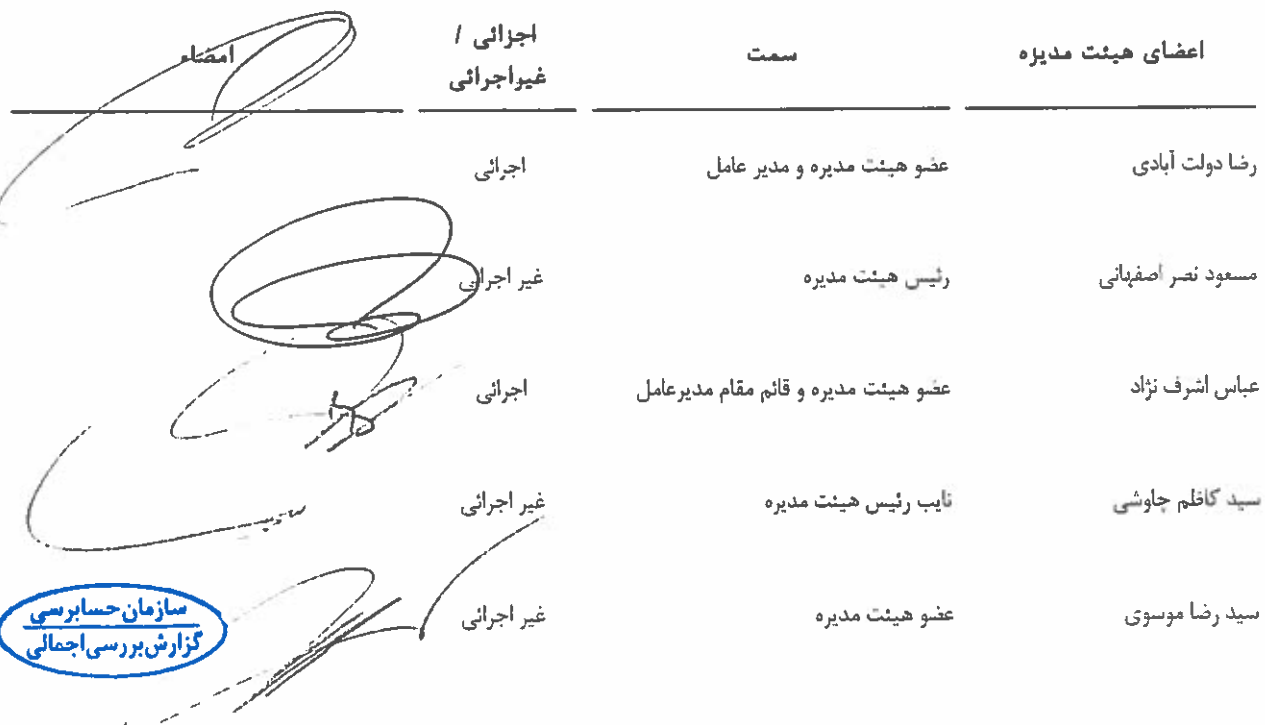 اعضای هیئت مدیره سمت اجرائی / غیراجرائی امضاء
رضا دولت آبادی عضو هیئت مدیره و مدیر عامل اجرائی
مسعود نصر اصفهانی رئیس هیئت مدیره غیر اجرائی
عباس اشرف نژاد عضو هیئت مدیره و قائم مقام مدیرعامل اجرائی
سید کاظم چاوشی نایب رئیس هیئت مدیره غیر اجرائی
سید رضا موسوی عضو هیئت مدیره غیر اجرائی
سازمان حسابرسی
گزارش بررسی اجمالی